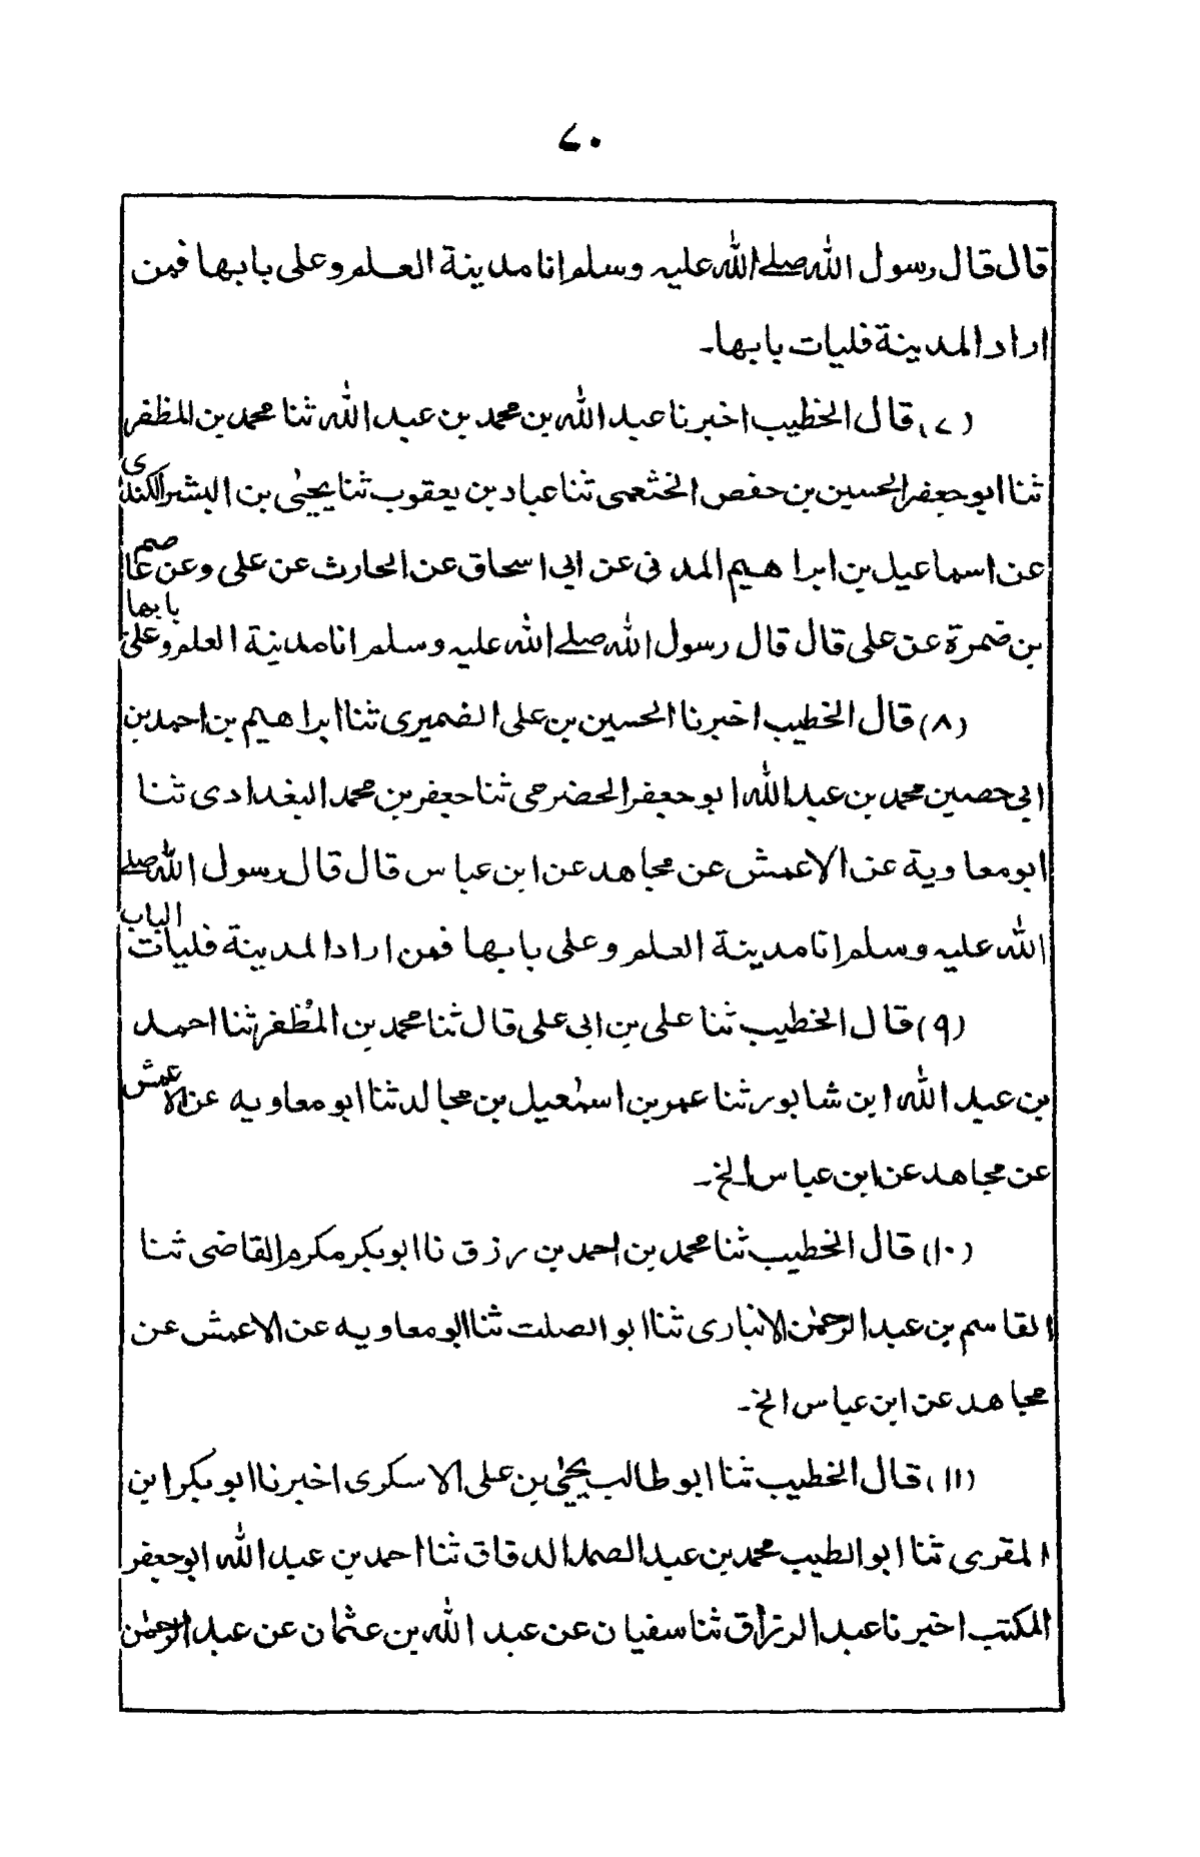 ۷۰
قال قال رسول الله صلے الله عليه وسلم انا مدينة العلم وعلى بابها فمن
اراد المدينة فليات بابها۔
(۷) قال الخطيب اخبرنا عبد الله بن محمد بن عبد الله ثنا محمد بن المظفر
ثنا ابو جعفر الحسين بن حفص الخثعمى ثنا عباد بن يعقوب ثنا يحيىٰ بن البشر الكندى
عن اسماعيل بن ابراهيم المدنى عن ابى اسحاق عن الحارث عن على وعن عاصم
بن ضمرة عن على قال قال رسول الله صلے الله عليه وسلم انا مدينة العلم وعلى بابها
(۸) قال الخطيب اخبرنا الحسين بن على الضميرى ثنا ابراهيم بن احمد بن
ابى حصين محمد بن عبد الله ابو جعفر الحضرمى ثنا جعفر بن محمد البغدادى ثنا
ابو معاوية عن الاعمش عن مجاهد عن ابن عباس قال قال رسول الله صلے
الله عليه وسلم انا مدينة العلم وعلى بابها فمن اراد المدينة فليات الباب
(۹) قال الخطيب ثنا على بن ابى على قال ثنا محمد بن المُظفر ثنا احمد
بن عبد الله ابن شابور ثنا عمر بن اسمٰعيل بن مجالد ثنا ابو معاويه عن الاعمش
عن مجاهد عن ابن عباس الخ۔
(۱۰) قال الخطيب ثنا محمد بن احمد بن رزق نا ابو بكر مكرم القاضى ثنا
القاسم بن عبد الرحمٰن الانبارى ثنا ابو الصلت ثنا ابو معاويه عن الاعمش عن
مجاهد عن ابن عباس الخ۔
(۱۱) قال الخطيب ثنا ابو طالب يحيىٰ بن على الاسكرى اخبرنا ابو بكر ابن
المقرى ثنا ابو الطيب محمد بن عبد الصمد الدقاق ثنا احمد بن عبد الله ابو جعفر
المكتب اخبرنا عبد الرزاق ثنا سفيان عن عبد الله بن عثمان عن عبد الرحمٰن